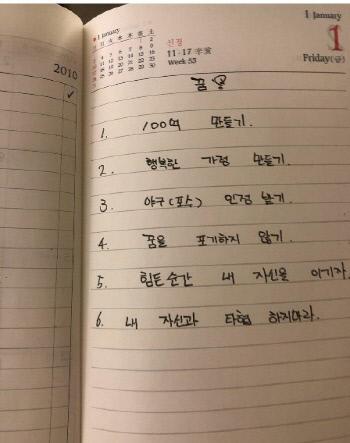 2010
✓
1 January
신정
11·17 辛亥
Week 53
1 January
1
Friday(금)
꿈
1. 100억 만들기.
2. 행복한 가정 만들기.
3. 야구(포수) 인정 받기.
4. 꿈을 포기하지 않기.
5. 힘든순간 내 자신을 이기자.
6. 내 자신과 타협 하지마라.